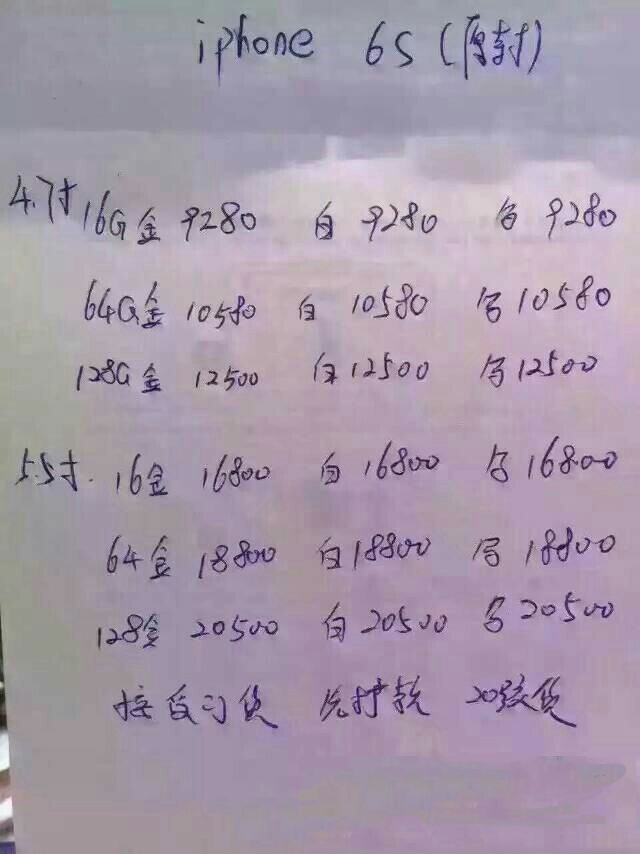 iphone 6S (原封)
4.7寸 16G金 9280 白 9280 黑 9280
64G金 10580 白 10580 黑 10580
128G金 12500 白 12500 黑 12500
5.5寸. 16金 16800 白 16800 黑 16800
64金 18800 白 18800 黑 18800
128金 20500 白 20500 黑 20500
接受订货 先打款 20号货